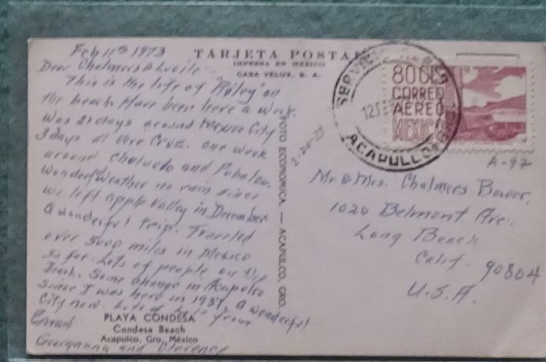 Feb 11th 1973
TARJETA POSTAL
IMPRESA EN MEXICO
CASA VELUX, S. A.
Dear Chalmers &
This is the life of "Riley" on
the beach. Have been here a week.
Was 21 days around Mexico City
3 days at Vera Cruz. one week
around and
Wonderful Weather no rain since
we left apple Valley in December
A wonderful trip. Traveled
over 5000 miles in Mexico
so far. Lots of people on
Some change in Acapulco
Since I was here in 1957. A wonderful
City now. from
PLAYA CONDESA
Condesa Beach
Acapulco, Gro, México
and Clarence
FOTO ECONOMICA, — ACAPULCO, GRO.
80 CTS
CORREO
AEREO
MEXICO
ACAPULCO
A-97
Mr & Mrs. Chalmers
1020 Belmont Ave.
Long Beach
Calif. 90804
U.S.A.